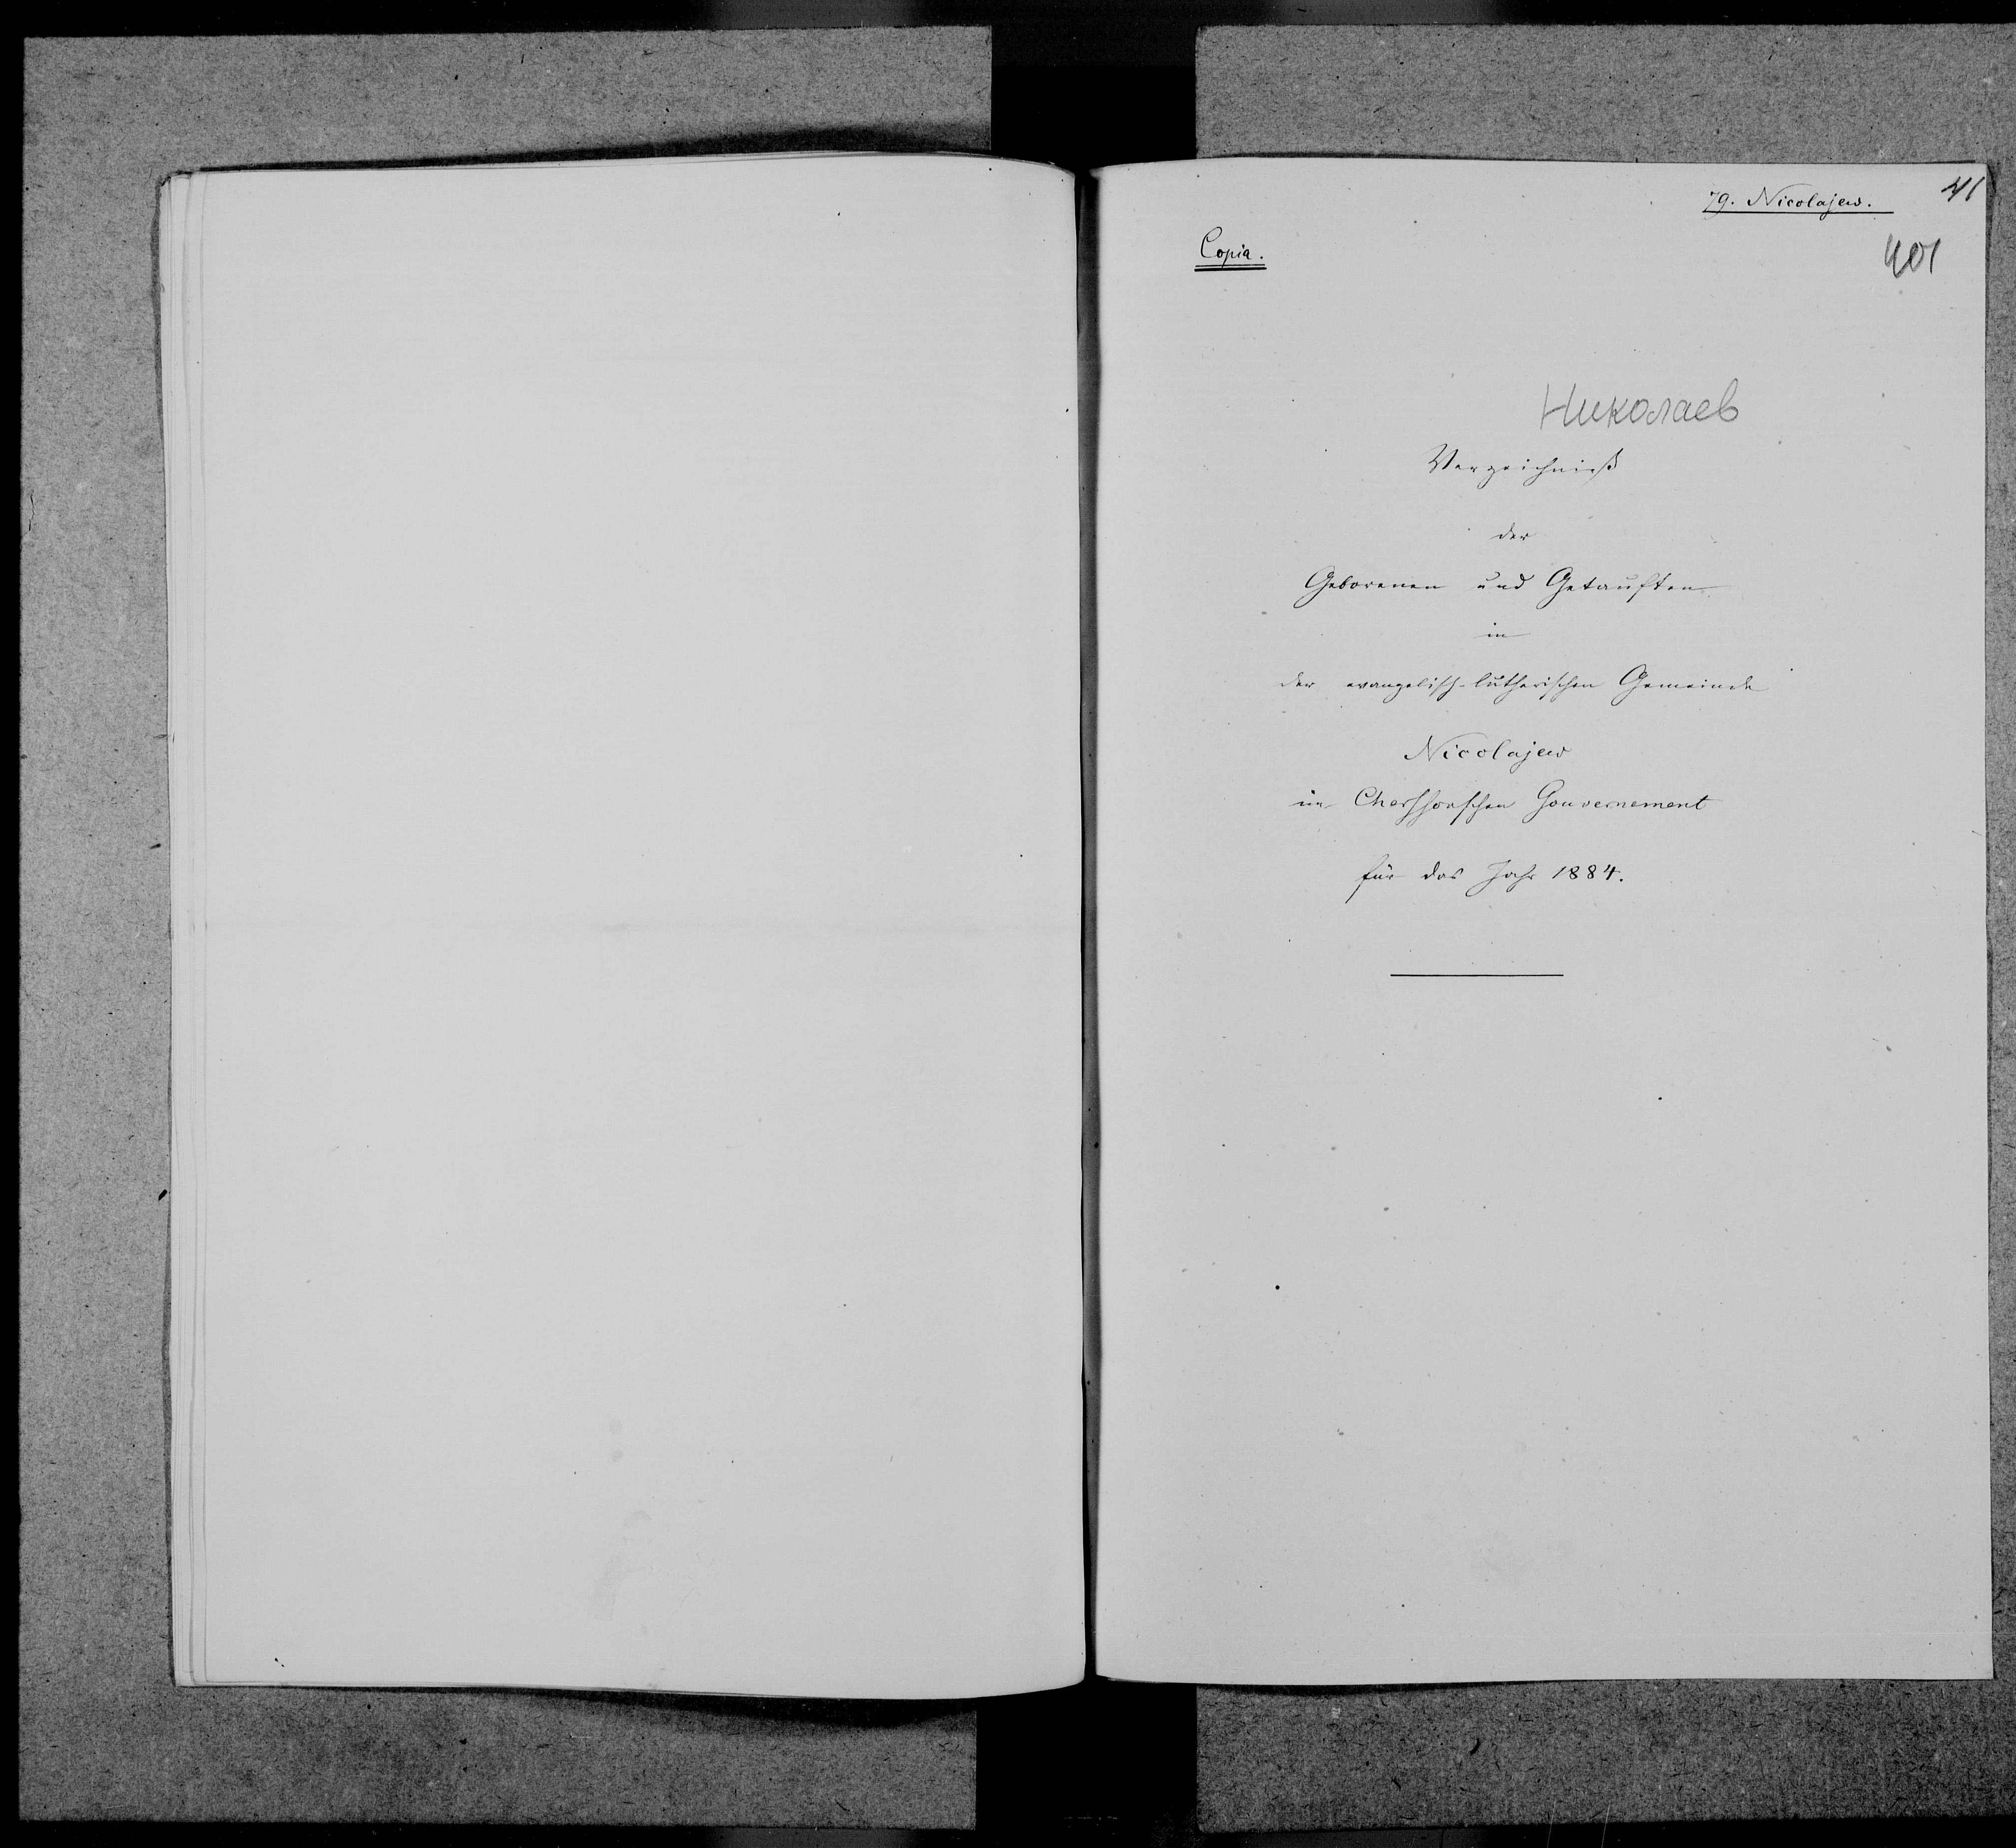 79. Nicolajew.
41
Copia.
401
Николаев
Verzeichniß
der
Geborenen und Getauften
in
der evangelisch-lutherischen Gemeinde
Nicolajew
im Chersonschen Gouvernement
für das Jahr 1884.